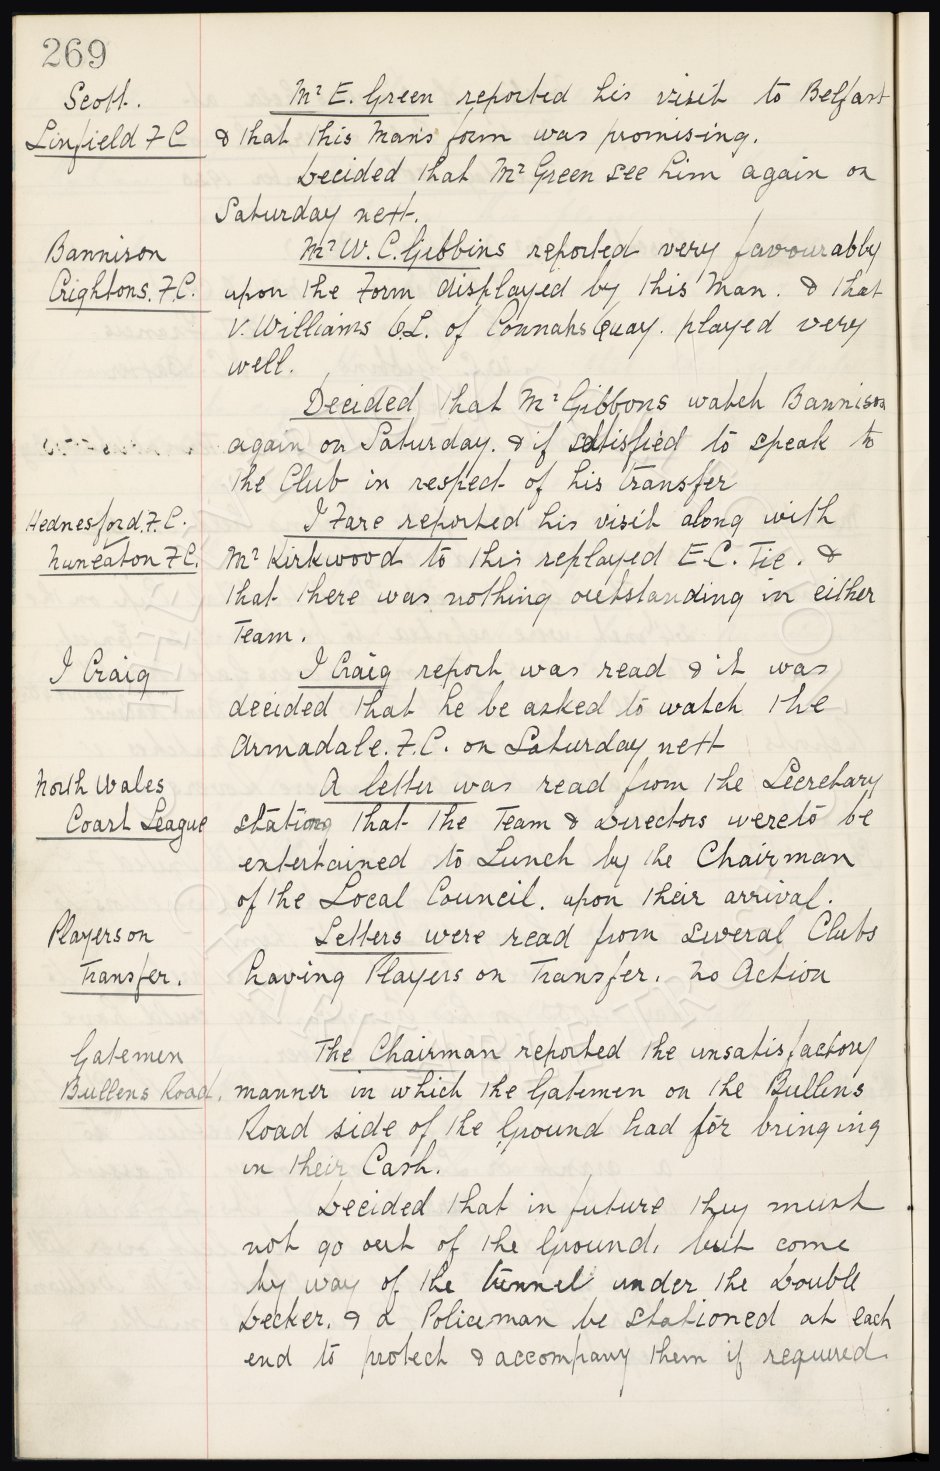 269
Scott.
Linfield F C
Mr E. Green reported his visit to Belfast
& that this Man's form was promising.
Decided that Mr Green see him again on
Saturday next.
Bannison
Crightons. F.C.
Mr W. C. Gibbins reported very favourabby
upon the Form displayed by this Man. & that
V. Williams O.L. of Connahs Quay. played very
well.
Decided that Mr Gibbons watch Bannison
again on Saturday. & if satisfied to speak to
the Club in respect of his transfer
Hednesford. F.C.
Nuneaton F.C.
I Fare reported his visit along with
Mr Kirkwood to this replayed E.C. Tie. &
that there was nothing outstanding in either
Team.
I Craig
I Craig report was read & it was
decided that he be asked to watch the
Armadale. F.C. on Saturday next
North Wales
Coast League
A letter was read from the Secretary
stating that the Team & Directors were to be
entertained to Lunch by the Chairman
of the Local Council. upon their arrival.
Players on
Transfer.
Letters were read from several Clubs
having Players on Transfer. No Action
Gatemen
Bullens Road.
The Chairman reported the unsatisfactory
manner in which the Gatemen on the Bullens
Road side of the Ground had for bringing
in their Cash.
Decided that in future they must
not go out of the Ground, but come
by way of the tunnel under the Double
Decker. & a Policeman be stationed at each
end to protect & accompany them if required